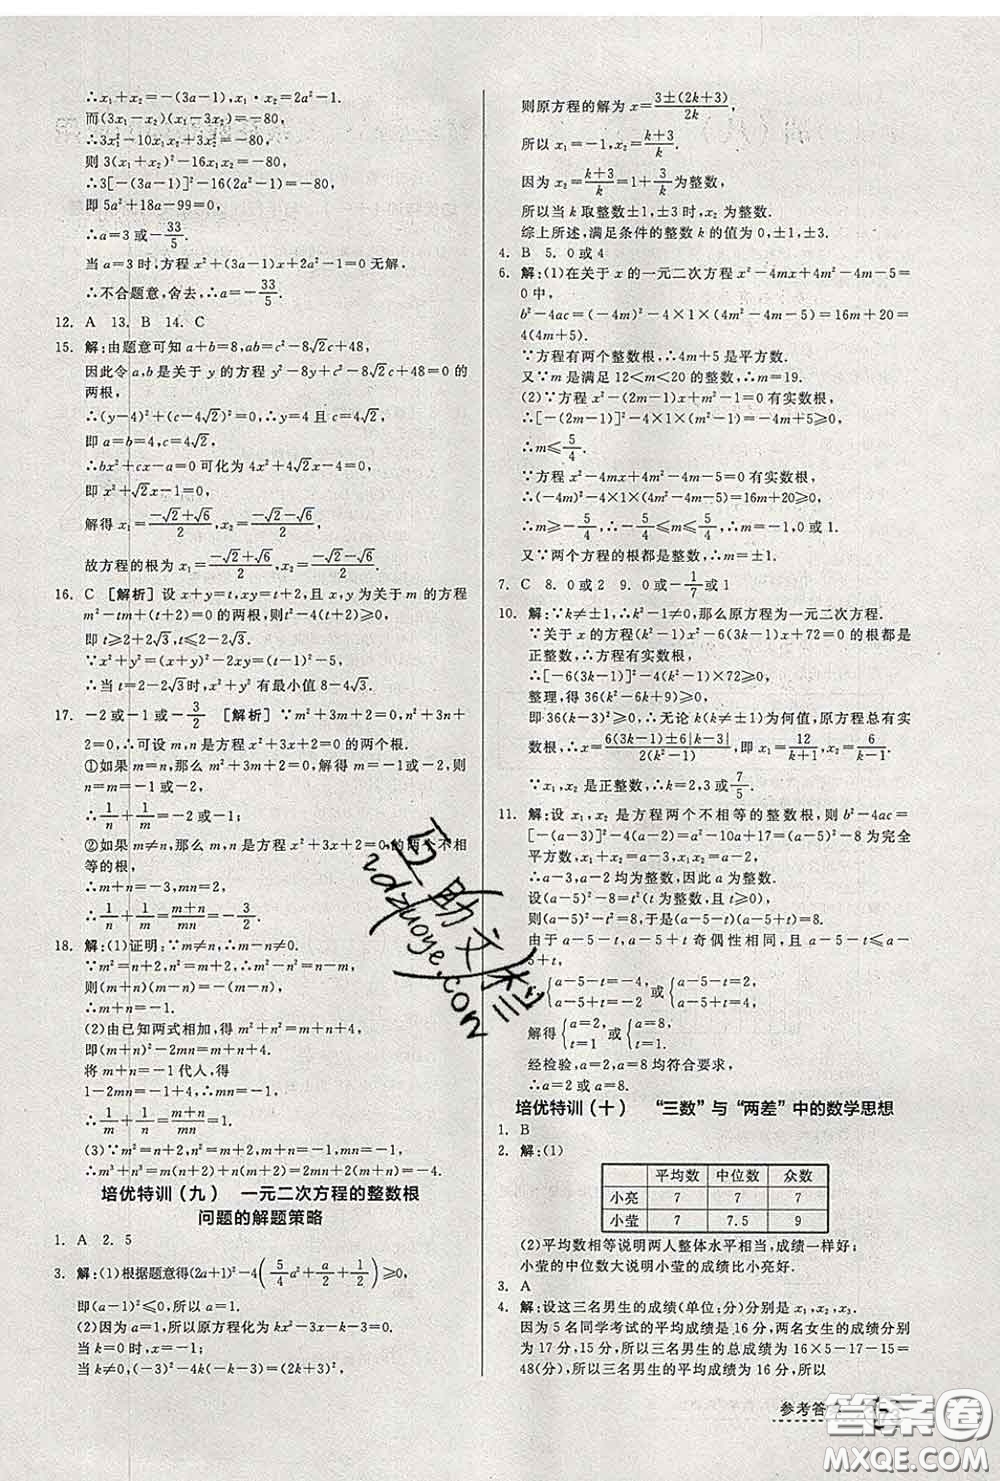 ∴x₁+x₂=-(3a-1),x₁·x₂=2a²-1.
而(3x₁-x₂)(x₁-3x₂)=-80,
∴3x₁²-10x₁x₂+3x₂²=-80,
则 3(x₁+x₂)²-16x₁x₂=-80,
∴3[-(3a-1)]²-16(2a²-1)=-80,
即 5a²+18a-99=0,
∴a=3 或-33/5.
当 a=3 时,方程 x²+(3a-1)x+2a²-1=0 无解.
∴不合题意,舍去,∴a=-33/5.
12. A 13. B 14. C
15. 解:由题意可知 a+b=8,ab=c²-8√2c+48,
因此令 a,b 是关于 y 的方程 y²-8y+c²-8√2c+48=0 的
两根,
∴(y-4)²+(c-4√2)²=0,∴y=4 且 c=4√2,
即 a=b=4,c=4√2,
∴bx²+cx-a=0 可化为 4x²+4√2x-4=0,
即 x²+√2x-1=0,
解得 x₁=(-√2+√6)/2,x₂=(-√2-√6)/2,
故方程的根为 x₁=(-√2+√6)/2,x₂=(-√2-√6)/2.
16. C [解析] 设 x+y=t,xy=t+2,且 x,y 为关于 m 的方程
m²-tm+(t+2)=0 的两根,则(-t)²-4(t+2)≥0,
即 t≥2+2√3,t≤2-2√3.
∵x²+y²=(x+y)²-2xy=(t-1)²-5,
∴当 t=2-2√3时,x²+y² 有最小值 8-4√3.
17. -2 或-1 或-3/2 [解析] ∵m²+3m+2=0,n²+3n+
2=0,∴可设 m,n 是方程 x²+3x+2=0 的两个根.
①如果 m=n,那么 m²+3m+2=0,解得 m=-1 或-2,则
n=-1 或-2,
∴1/n+1/m=-2 或-1;
②如果 m≠n,那么 m,n 是方程 x²+3x+2=0的两个不相
等的根,
∴m+n=-3,mn=2,
∴1/n+1/m=(m+n)/mn=-3/2.
18. 解:(1)证明:∵m≠n,∴m-n≠0.
∵m²=n+2,n²=m+2,∴m²-n²=n-m,
则(m+n)(m-n)=-(m-n),
∴m+n=-1.
(2)由已知两式相加,得 m²+n²=m+n+4,
即(m+n)²-2mn=m+n+4.
将 m+n=-1 代人,得
1-2mn=-1+4,∴mn=-1.
(3)∵m²=n+2,n²=m+2,m+n=-1,mn=-1,
∴m³-2mn+n³=m(n+2)+n(m+2)-2mn=2(m+n)=-2
培优特训(九) 一元二次方程的整数根
问题的解题策略
1. A 2. 5
3. 解:(1)根据题意得(2a+1)²-4(5/4a²+a/2+1/2)≥0,
即(a-1)²≤0,所以 a=1.
(2)因为 a=1,所以原方程化为 kx²-3x-k-3=0,
当 k=0 时,x=-1;
当 k≠0 时,(-3)²-4k(-k-3)=(2k+3)²,
则原方程的解为 x=(3±(2k+3))/2k,
所以 x₁=-1,x₂=(k+3)/k.
因为 x₂=(k+3)/k=1+3/k为整数,
所以当 k 取整数±1,±3 时,x₂ 为整数.
综上所述,满足条件的整数 k 的值为 0,±1,±3.
4. B 5. 0 或 4
6. 解:(1)在关于 x 的一元二次方程 x²-4mx+4m²-4m-5=
0 中,
b²-4ac=(-4m)²-4×1×(4m²-4m-5)=16m+20=
4(4m+5).
∵方程有两个整数根,∴4m+5 是平方数.
又∵m 是满足 12<m<20 的整数,∴m=19.
(2)∵方程 x²-(2m-1)x+m²-1=0 有实数根,
∴[-(2m-1)]²-4×1×(m²-1)=-4m+5≥0,
∴m≤5/4.
∵方程 x²-4mx+4m²-4m-5=0 有实数根,
∴(-4m)²-4×1×(4m²-4m-5)=16m+20≥0,
∴m≥-5/4,∴-5/4≤m≤5/4,∴m=-1,0 或 1.
又∵两个方程的根都是整数,∴m=±1.
7. C 8. 0 或 2 9. 0 或-1/7或 1
10. 解:∵k≠±1,∴k²-1≠0,那么原方程为一元二次方程.
∵关于 x 的方程(k²-1)x²-6(3k-1)x+72=0 的根都是
正整数,∴方程有实数根,
∴[-6(3k-1)]²-4(k²-1)×72≥0,
整理,得 36(k²-6k+9)≥0,
即 36(k-3)²≥0,∴无论 k(k≠±1)为何值,原方程总有实
数根,∴x=(6(3k-1)±6|k-3|)/(2(k²-1)),即 x₁=12/(k+1),x₂=6/(k-1).
∵x₁,x₂ 是正整数,∴k=2,3 或7/5.
11. 解:设 x₁,x₂ 是方程两个不相等的整数根,则 b²-4ac=
[-(a-3)]²-4(a+2)=a²-10a+17=(a-5)²-8 为完全
平方数,x₁+x₂=a-3,x₁x₂=a+2,
∴a-3,a+2 均为整数,因此 a 为整数.
设(a-5)²-8=t²(t 为整数,且 t≥0),
则(a-5)²-t²=8,于是(a-5-t)(a-5+t)=8.
由于 a-5-t,a-5+t 奇偶性相同,且 a-5-t≤a-
5+t,
{a-5-t=-4,a-5+t=-2 或{a-5-t=2,a-5+t=4,
解得{a=2,t=1 或{a=8,t=1.
经检验,a=2,a=8 均符合要求,
∴a=2 或 a=8.
培优特训(十) “三数”与“两差”中的数学思想
1. B
2. 解:(1)
平均数 中位数 众数
小亮 7 7 7
小莹 7 7.5 9
(2)平均数相等说明两人整体水平相当,成绩一样好;
小莹的中位数大说明小莹的成绩比小亮好.
3. A
4. 解:设这三名男生的成绩(单位:分)分别是 x₁,x₂,x₃.
因为 5 名同学考试的平均成绩是 16 分,两名女生的成绩分别
为 17 分,15 分,所以三名男生的总成绩为 16×5-17-15=
48(分),所以三名男生的平均成绩为 16 分,所以
参考答
答案圈
MXQE.COM
互助文档
zdzuoye.con